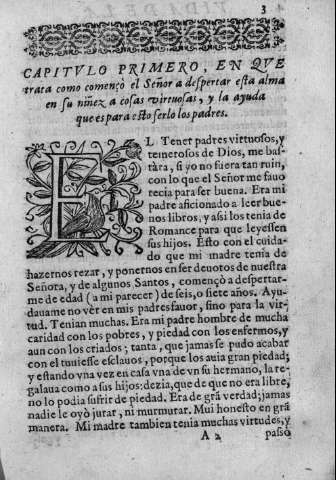 3
CAPITVLO PRIMERO, EN QVE
trata como començò el Señor a despertar esta alma
en su niñez a cosas virtuosas, y la ayuda
que es para esto serlo los padres.
EL Tener padres virtuosos, y
temerosos de Dios, me bas-
tàra, si yo no fuera tan ruin,
con lo que el Señor me fauo
recia para ser buena. Era mi
padre aficionado a leer bue-
nos libros, y assi los tenia de
Romance para que leyessen
sus hijos. Esto con el cuida-
do que mi madre tenia de
hazernos rezar, y ponernos en ser deuotos de nuestra
Señora, y de algunos Santos, començò a despertar-
me de edad (a mi parecer) de seis, o siete años. Ayu-
dauame no vèr en mis padres fauor, sino para la vir-
tud. Tenian muchas. Era mi padre hombre de mucha
caridad con los pobres, y piedad con los enfermos, y
aun con los criados; tanta, que jamas se pudo acabar
con el tuuiesse esclauos, porque los auia gran piedad;
y estando vna vez en casa vna de vn su hermano, la re-
galaua como a sus hijos: dezia, que de que no era libre,
no lo podia sufrir de piedad. Era de grã verdad; jamas
nadie le oyò jurar, ni murmurar. Mui honesto en grã
manera. Mi madre tambien tenia muchas virtudes, y
A 2 passò